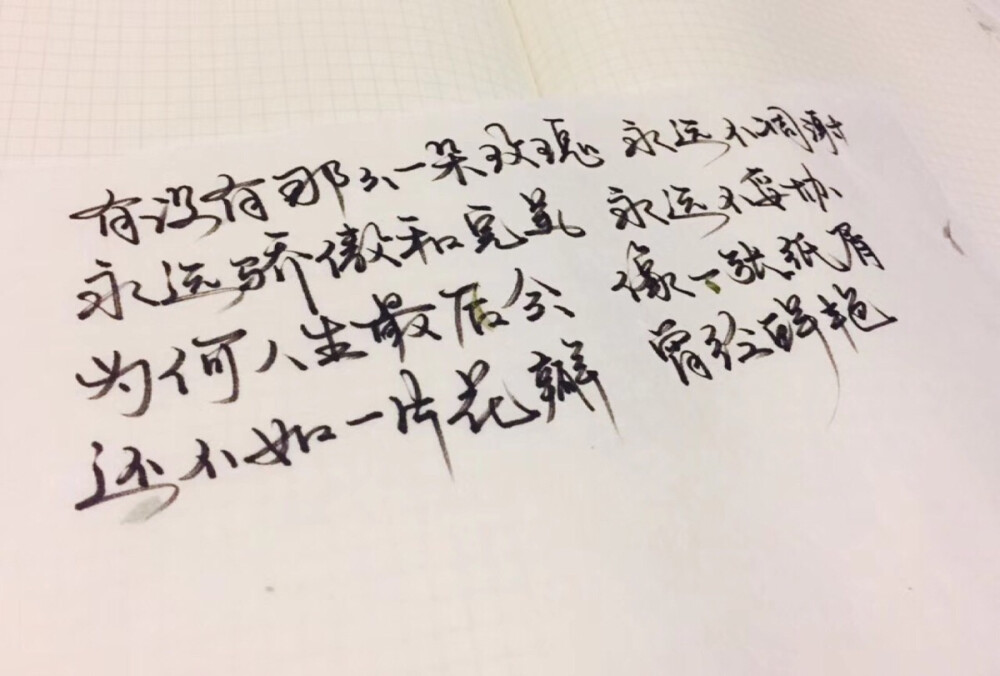 有没有那么一朵玫瑰 永远不凋谢
永远骄傲和完美 永远不妥协
为何人生最后会 像一张纸屑
还不如一片花瓣 曾经鲜艳